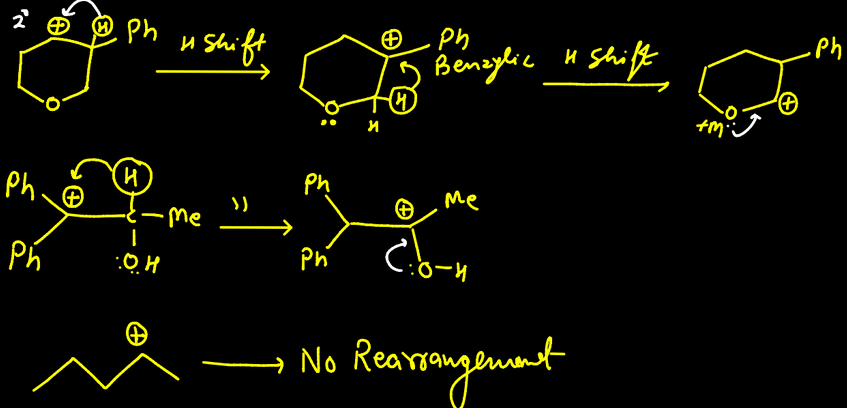 2° ⊕ H Ph
O
H Shift
⊕ Ph
Benzylic
H
O
H
H Shift
Ph
O ⊕
+m
Ph ⊕ H
C Me
Ph :OH
''
Ph ⊕ Me
Ph :O-H
⊕
No Rearrangement